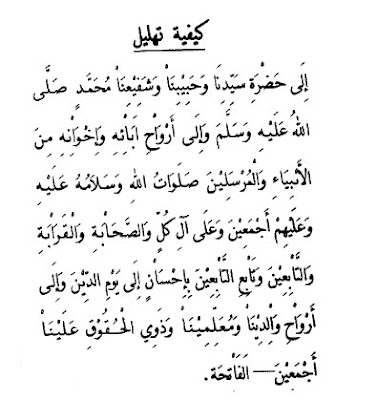 كيفية تهليل
إِلَى حَضْرَةِ سَيِّدِنَا وَحَبِيبِنَا وَشَفِيعِنَا مُحَمَّدٍ صَلَّى
اللهُ عَلَيْهِ وَسَلَّمَ وَإِلَى أَرْوَاحِ اٰبَائِهِ وَاِخْوَانِهِ مِنَ
الْأَنْبِيَاءِ وَالْمُرْسَلِيْنَ صَلَوَاتُ اللهِ وَسَلَامُهُ عَلَيْهِ
وَعَلَيْهِمْ أَجْمَعِيْنَ وَعَلَى آلِ كُلٍّ وَالصَّحَابَةِ وَالْقَرَابَةِ
وَالتَّابِعِيْنَ وَتَابِعِ التَّابِعِيْنَ بِإِحْسَانٍ إِلَى يَوْمِ الدِّيْنَ وَإِلَى
أَرْوَاحِ وَالِدِيْنَا وَمُعَلِّمِيْنَا وَذَوِي الْحُقُوْقِ عَلَيْنَا
أَجْمَعِيْنَ — اَلْفَاتِحَة.